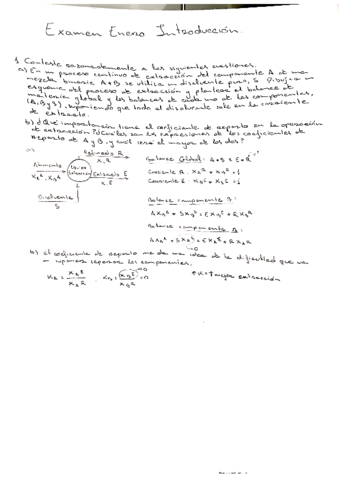 Examen Enero Introducción.
1. Conteste razonadamente a las siguientes cuestiones.
a) En un proceso continuo de extracción del componente A de una
mezcla binaria A+B se utiliza un disolvente puro, S. Dibuje un
esquema del proceso de extracción y plantee el balance de
materia global y los balances de cada uno de los componentes,
(A, B y S), suponiendo que todo el disolvente sale en la corriente
de extracto.
b) ¿Qué importancia tiene el coeficiente de reparto en la operación
de extracción? ¿Cuáles son las expresiones de los coeficientes de
reparto de A y B, y cuál será el mayor de los dos?
a)
Refinado R
Alimento
Extracto E
Disolvente
S
Balance Global: A+S = E+R
Corriente A.
Corriente E
Balance componente B:
Balance componente A:
b) el coeficiente de reparto me da una idea de la dificultad que va
a suponer separar los componentes.
↑K = ↑ mejor extracción